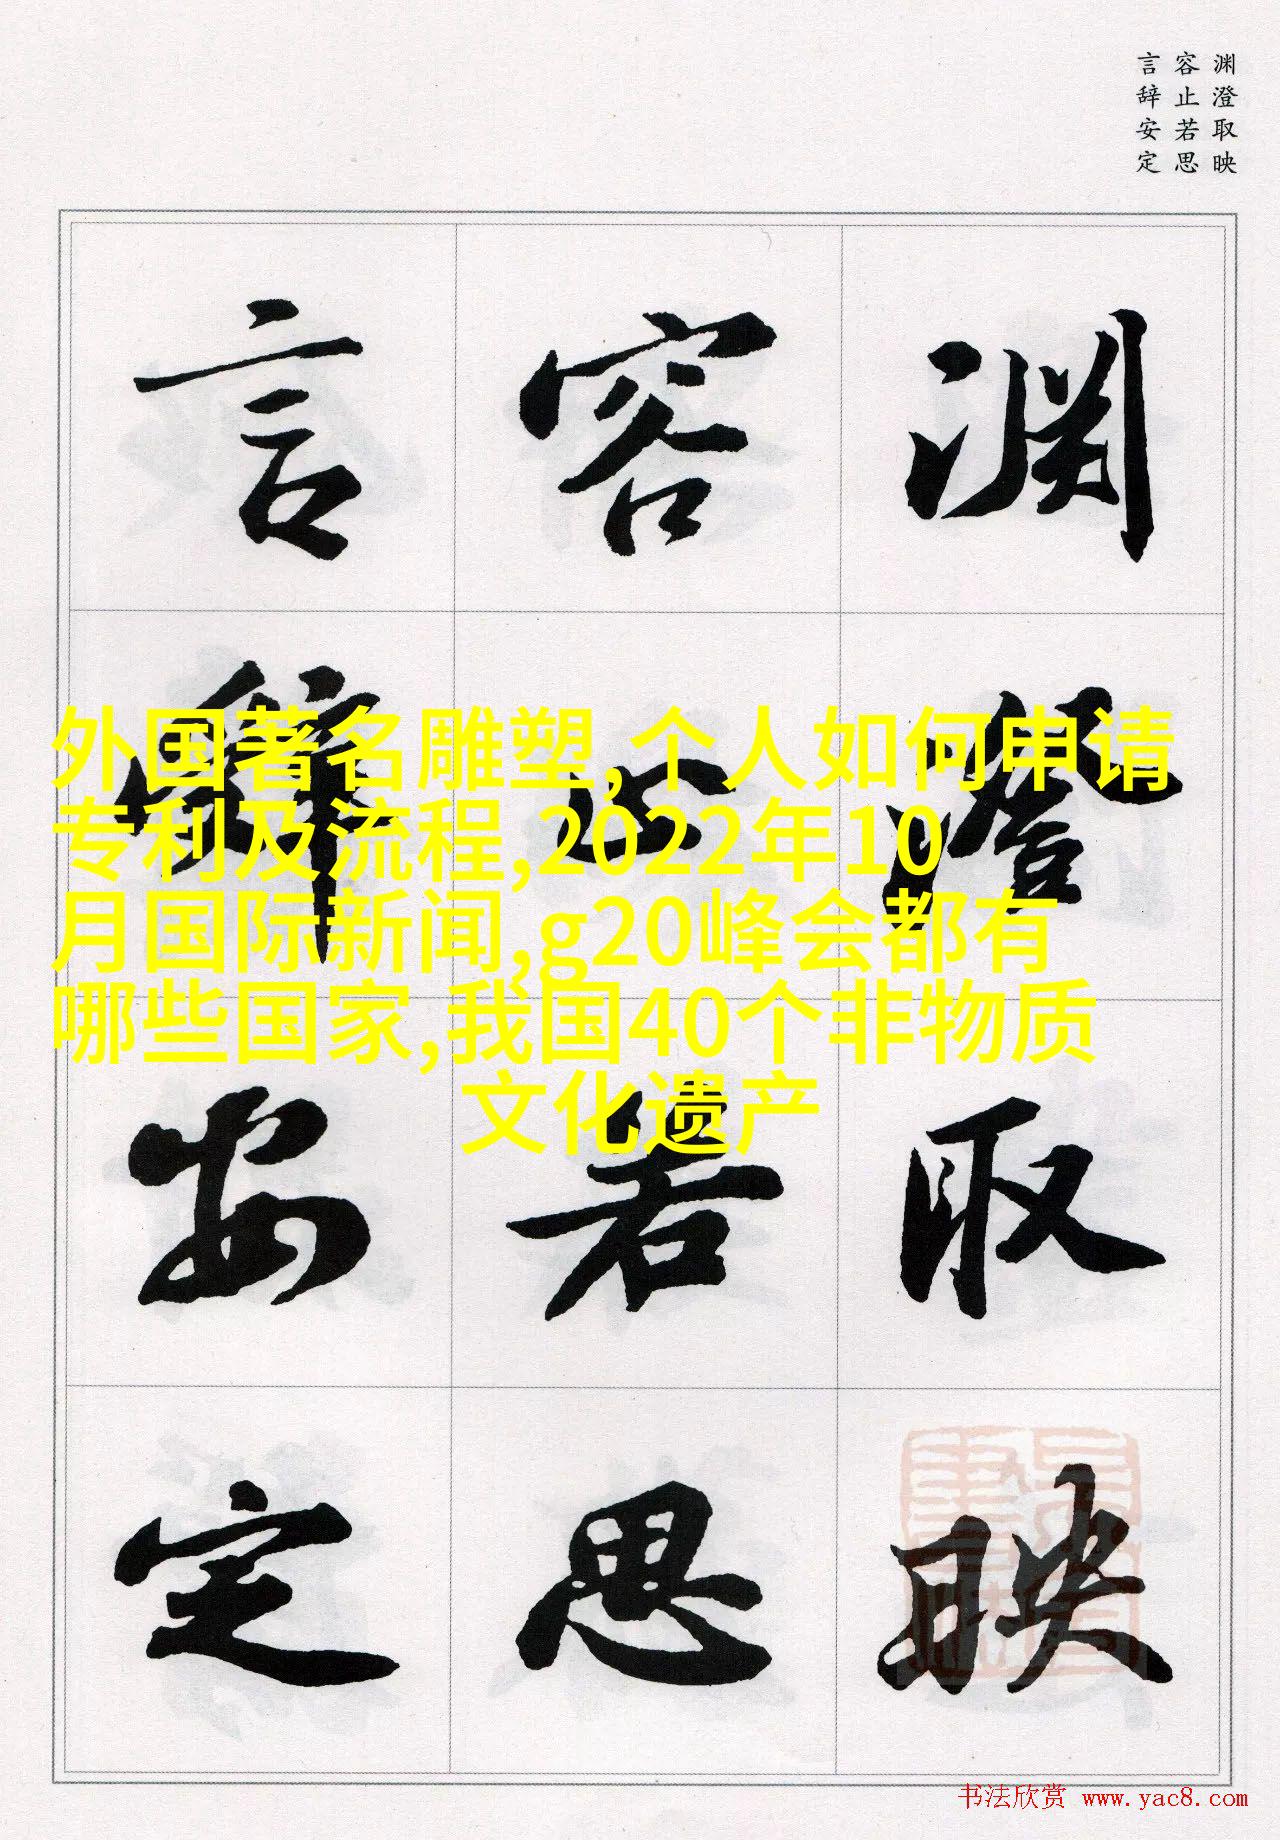 渊澄取映
容止若思
言辞安定
渊澄取映
容止若思
言辞安定
外国著名雕塑,个人如何申请
专利及流程,2022年10
月国际新闻,g20峰会都有
哪些国家,我国40个非物质
文化遗产
书法欣赏 www.yac8.com